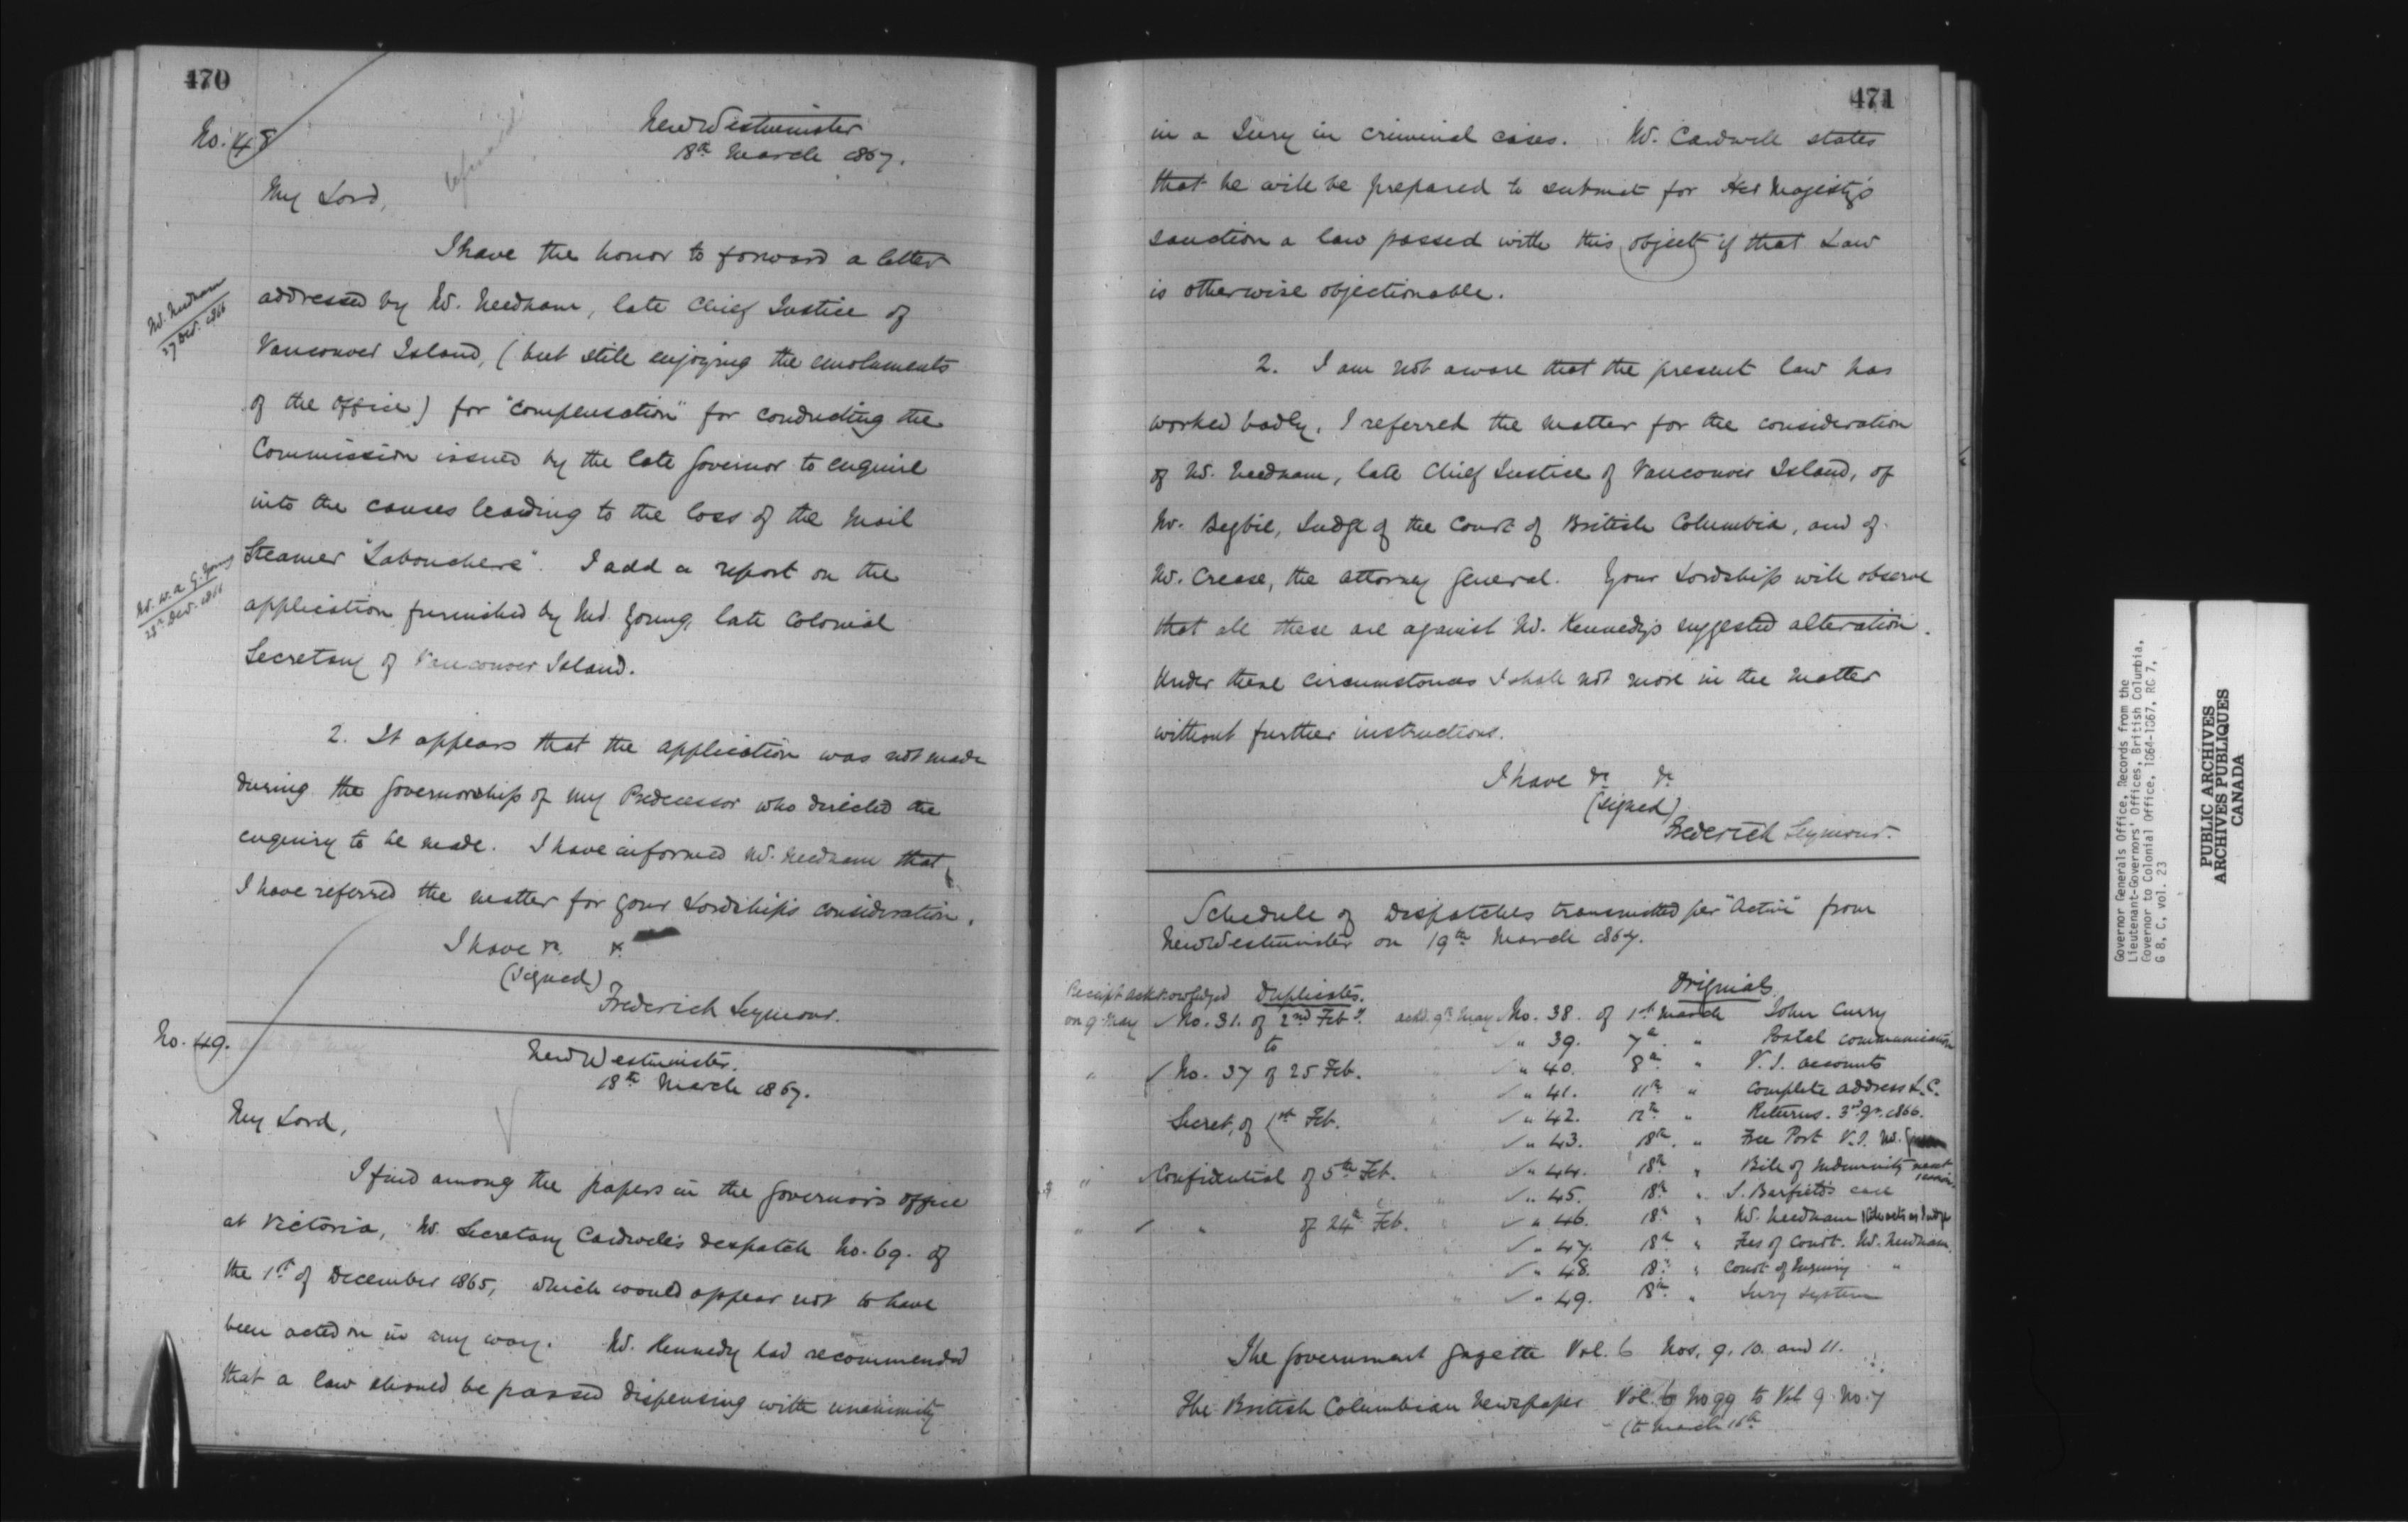 470
No. 48
New Westminster
18th March 1867.
My Lord,
I have the honor to forward a letter
addressed by Mr. Needham, late Chief Justice of
Vancouver Island, (but still enjoying the emoluments
of the office) for "compensation" for conducting the
Commission issued by the late Governor to enquire
into the causes leading to the loss of the Mail
Steamer "Labouchere". I add a report on the
application furnished by Mr. Young, late Colonial
Secretary of Vancouver Island.
Mr. Needham
27 Dec. 1866
Mr. W. A. G. Young
28th Dec. 1866
2. It appears that the application was not made
during the Governorship of my Predecessor who directed the
enquiry to be made. I have informed Mr. Needham that
I have referred the matter for your Lordship's consideration.
I have &c. &.
(signed)
Frederick Seymour.
No. 49.
New Westminster.
18th March 1867.
My Lord,
I find among the papers in the Governor's office
at Victoria, Mr. Secretary Cardwell's despatch No. 69. of
the 1st of December 1865, which would appear not to have
been acted on in any way. Mr. Kennedy had recommended
that a law should be passed dispensing with unanimity
471
in a Jury in criminal cases. Mr. Cardwell states
that he will be prepared to submit for Her Majesty's
sanction a law passed with this object if that Law
is otherwise objectionable.
2. I am not aware that the present law has
worked badly. I referred the matter for the consideration
of Mr. Needham, late Chief Justice of Vancouver Island, of
Mr. Begbie, Judge of the Court of British Columbia, and of
Mr. Crease, the Attorney General. Your Lordship will observe
that all these are against Mr. Kennedy's suggested alteration.
Under these circumstances I shall not move in the matter
without further instructions.
I have &c &c
(signed)
Frederick Seymour.
Schedule of Despatches transmitted per "Active" from
New Westminster on 19th March 1867.
Receipt acknowledged Duplicates.
on 9 May ✓ No. 31. of 2nd Feby.
to
" ✓ No. 37 of 25 Feb.
Secret, of 1st Feb.
" ✓ Confidential of 5th Feb.
" ✓ " of 24th Feb.
Originals
ackd. 9th May No. 38. of 1st March John Curry
✓ " 39. 7th " Postal communication
✓ " 40. 8th " V. I. accounts
✓ " 41. 11th " Complete address L. C.
✓ " 42. 12th " Returns. 3rd qr. 1866.
✓ " 43. 18th " Free Port V. I. Mr.
✓ " 44. 18th " Bill of Indemnity next session
✓ " 45. 18th " J. Barfield's case
✓ " 46. 18th " Mr. Needham
✓ " 47. 18th " Fees of Court. Mr. Needham
✓ " 48. 18th " Court of Inquiry "
✓ " 49. 18th " Jury System
The Government Gazette Vol. 6 Nos. 9. 10. and 11.
The British Columbian Newspaper Vol. No 99 to Vol 9. No. 7
(to March 16th
Governor Generals Office, Records from the
Lieutenant-Governors' Offices, British Columbia,
Governor to Colonial Office, 1864-1867, RG 7,
G 8, C, vol. 23
PUBLIC ARCHIVES
ARCHIVES PUBLIQUES
CANADA